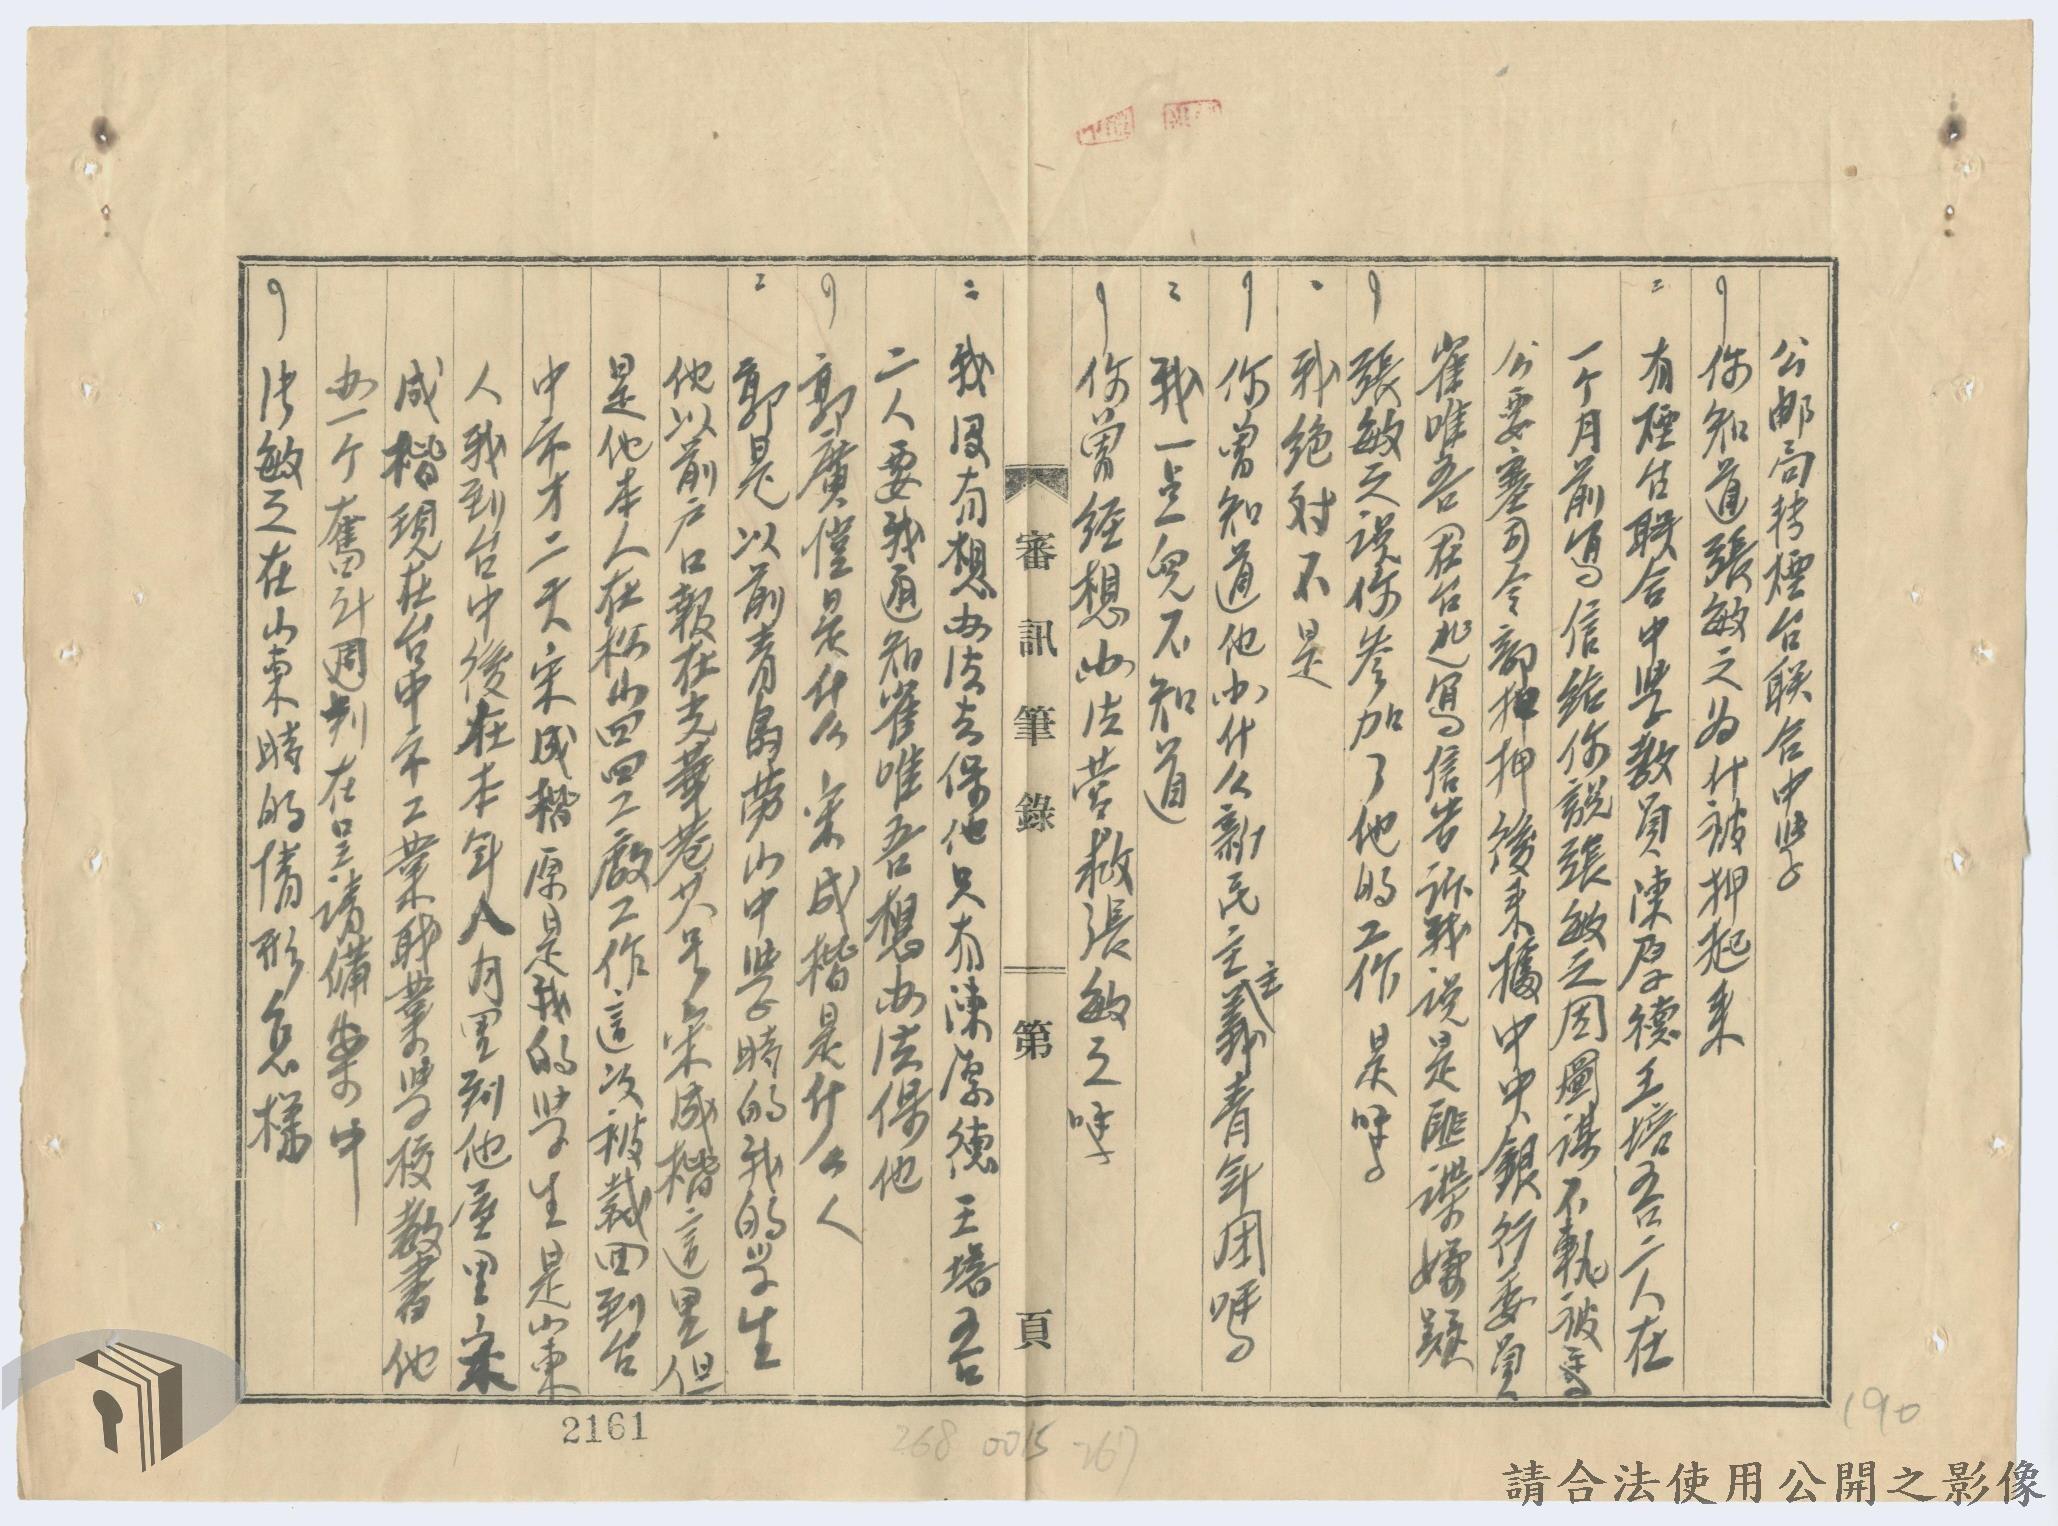 公郵局轉煙台联合中學
你知道張敏之為什被押起来
有煙台联合中學教員陳厚德王培吾二人在
一个月前寫信給你說張敏之因圖謀不軌被馬
公要塞司令部押押後来據中中央銀行委員
崔唯吾在台北寫信告訴我说是匪諜嫌疑
張敏之说你参加了他的工作是嗎
我绝对不是
你曾知道他办什么新民主主義青年团嗎
我一点兒不知道
你曾經想办法营救張敏之嗎
審訊筆錄 第 頁
我没有想办法去保他只有陳厚德王培吾
二人要我通知崔唯吾想办法保他
郭廣儅是什么宋成楷是什么人
郭是以前青島劳山中學時的我的学生
他以前户口報在光華巷廿号宋成楷這里但
是他本人在松山四四工廠工作這次被裁回到台
中市才二天宋成楷原是我的学生是山東
人我到台中後在本年八月里到他屋里宋
成楷現在台中市工業職業学校教書他
办一个奮斗週刊在呈請備案中
张敏之在山東時的情形怎樣
2161
268 0015 267
190
請合法使用公開之影像